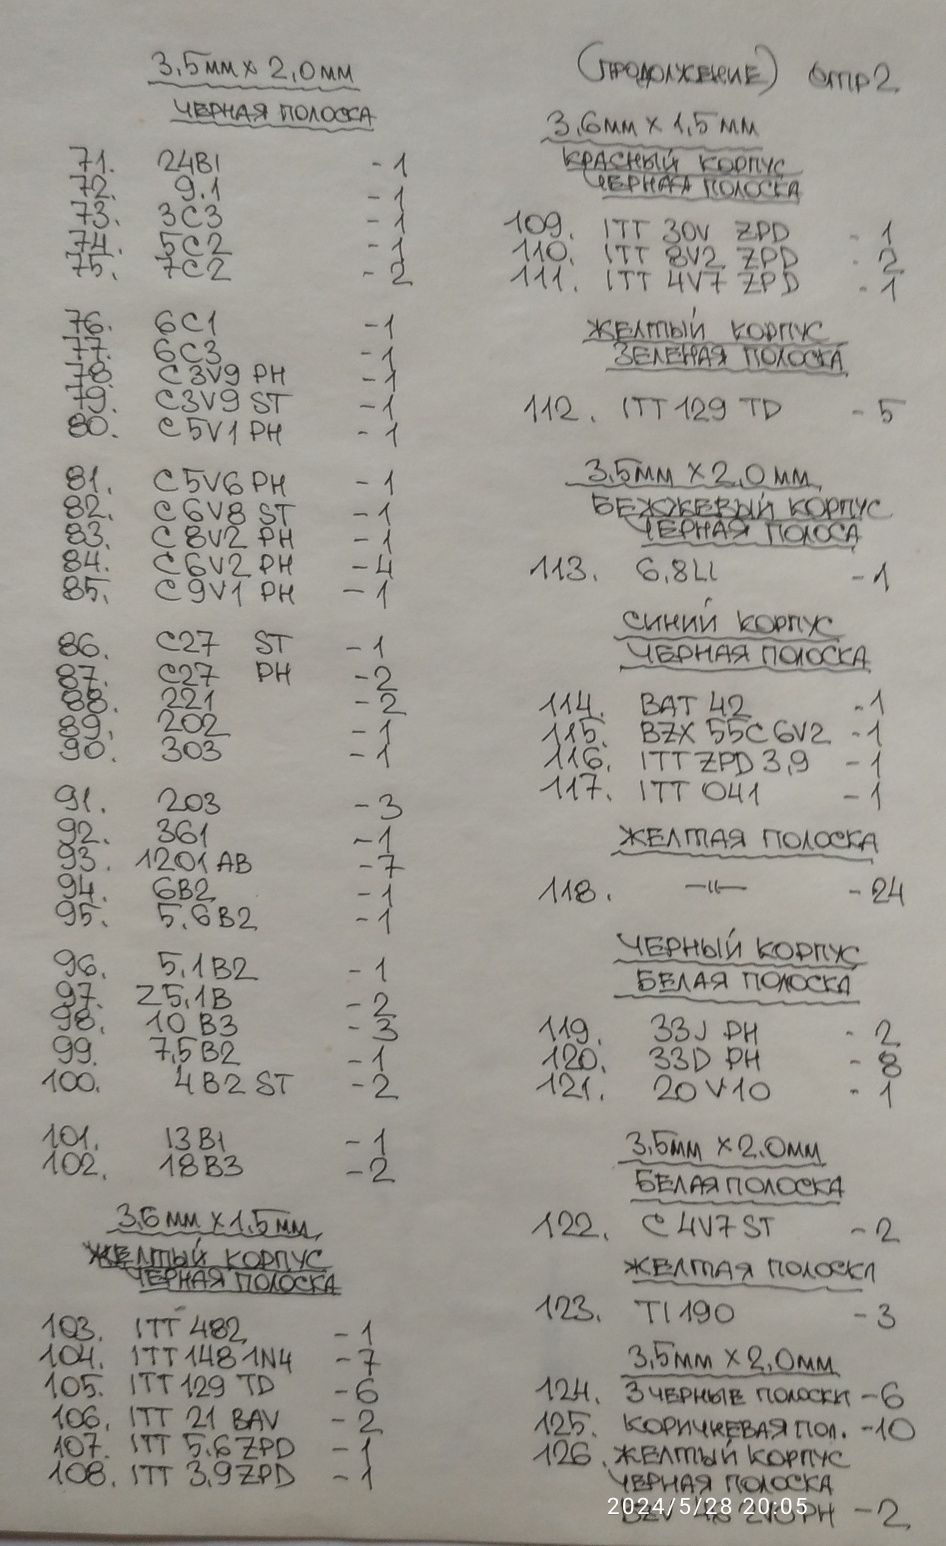 3,5мм x 2,0мм
ЧЕРНАЯ ПОЛОСКА
71. 24B1 - 1
72. 9.1 - 1
73. 3C3 - 1
74. 5C2 - 1
75. 7C2 - 2
76. 6C1 - 1
77. 6C3 - 1
78. C3V9 PH - 1
79. C3V9 ST - 1
80. C5V1 PH - 1
81. C5V6 PH - 1
82. C6V8 ST - 1
83. C8V2 PH - 1
84. C6V2 PH - 4
85. C9V1 PH - 1
86. C27 ST - 1
87. C27 PH - 2
88. 221 - 2
89. 202 - 1
90. 303 - 1
91. 203 - 3
92. 361 - 1
93. 1201 AB - 7
94. 6B2 - 1
95. 5,6B2 - 1
96. 5,1B2 - 1
97. Z5,1B - 2
98. 10 B3 - 3
99. 7,5B2 - 1
100. 4B2 ST - 2
101. 13B1 - 1
102. 18B3 - 2
3,6мм x 1,5мм
ЖЕЛТЫЙ КОРПУС
ЧЕРНАЯ ПОЛОСКА
103. ITT 482 - 1
104. ITT 148 1N4 - 7
105. ITT 129 TD - 6
106. ITT 21 BAV - 2
107. ITT 5.6 ZPD - 1
108. ITT 3,9 ZPD - 1
(ПРОДОЛЖЕНИЕ) стр 2
3,6мм x 1,5мм
КРАСНЫЙ КОРПУС
ЧЕРНАЯ ПОЛОСКА
109. ITT 30V ZPD - 1
110. ITT 8V2 ZPD - 2
111. ITT 4V7 ZPD - 1
ЖЕЛТЫЙ КОРПУС
ЗЕЛЕНАЯ ПОЛОСКА
112. ITT 129 TD - 5
3,5мм x 2,0мм
БЕЖЖЕВЫЙ КОРПУС
ЧЕРНАЯ ПОЛОСА
113. 6,8LL - 1
СИНИЙ КОРПУС
ЧЕРНАЯ ПОЛОСКА
114. BAT 42 - 1
115. BZX 55C 6V2 - 1
116. ITT ZPD 3,9 - 1
117. ITT 041 - 1
ЖЕЛТАЯ ПОЛОСКА
118. —"— - 24
ЧЕРНЫЙ КОРПУС
БЕЛАЯ ПОЛОСКА
119. 33J PH - 2
120. 33D PH - 8
121. 20 V10 - 1
3,5мм x 2,0мм
БЕЛАЯ ПОЛОСКА
122. C 4V7 ST - 2
ЖЕЛТАЯ ПОЛОСКА
123. TI 190 - 3
3,5мм x 2,0мм
124. 3 ЧЕРНЫЕ ПОЛОСКИ - 6
125. КОРИЧНЕВАЯ ПОЛ. - 10
126. ЖЕЛТЫЙ КОРПУС
ЧЕРНАЯ ПОЛОСКА
2024/5/28 20:05
PH - 2